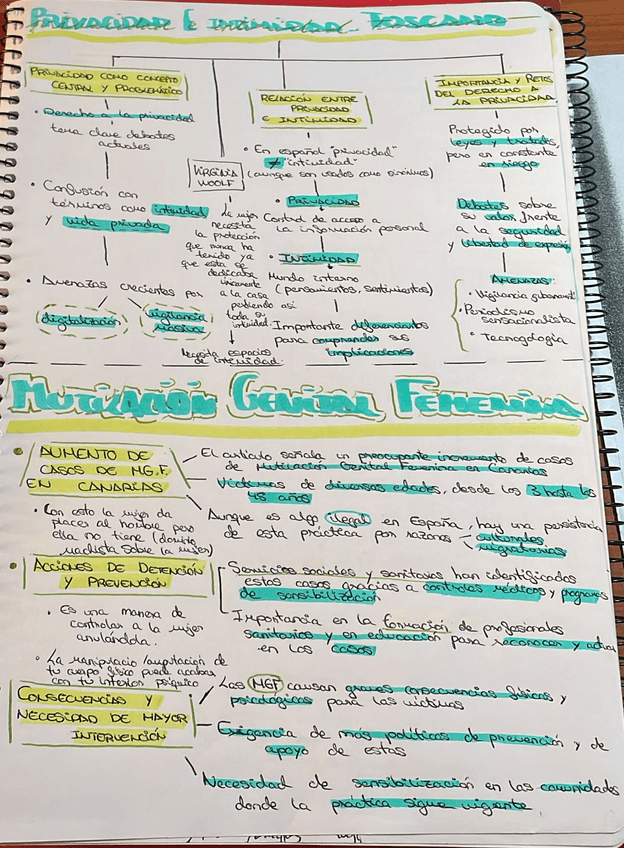 PRIVACIDAD E INTIMIDAD. TOSCANO
PRIVACIDAD COMO CONCEPTO
CENTRAL Y PROBLEMÁTICO
• Derecho a la privacidad
tema clave debates
actuales
• Confusión con
términos como intimidad
y vida privada
• Amenazas crecientes por
digitalización
vigilancia
masiva
VIRGINIA
WOOLF
La mujer
necesita
la protección
que nunca ha
tenido ya
que esta se
dedicaba
únicamente
a la casa,
perdiendo así
toda su
intimidad
Necesita espacios
de intimidad.
RELACIÓN ENTRE
PRIVACIDAD
E INTIMIDAD
• En español "privacidad"
≠ "intimidad"
(aunque son usados como sinónimos)
• PRIVACIDAD
Control de acceso a
la información personal
• INTIMIDAD
Mundo interno
(pensamientos, sentimientos)
Importante diferenciarlos
para comprender sus
implicaciones
IMPORTANCIA Y RETOS
DEL DERECHO A
LA PRIVACIDAD
Protegido por
leyes y tratados,
pero en constante
en riesgo
Debates sobre
su valor frente
a la seguridad
y libertad de expresi
AMENAZAS:
• Vigilancia gubernament
• Periodismo
sensacionalista
• Tecnologogia
MUTILACIÓN GENITAL FEMENINA
• AUMENTO DE
CASOS DE M.G.F
EN CANARIAS
El artículo señala un preocupante incremento de casos
de Mutilación Genital Femenina en Canarias
Víctimas de diversas edades, desde los 3 hasta los
48 años
Aunque es algo ilegal en España, hay una persistencia
de esta práctica por razones culturales
migratorias
• Con esto la mujer da
placer al hombre pero
ella no tiene (dominio
machista sobre la mujer)
• ACCIONES DE DETENCIÓN
Y PREVENCIÓN
Servicios sociales y sanitarios han identificados
estos casos gracias a controles médicos y programas
de sensibilización
Importancia en la formación de profesionales
sanitarios y en educación para reconocer y actua
en los casos
• Es una manera de
controlar a la mujer
anulándola.
• La manipulacio/amputación de
tu cuerpo físico puede acabar
con tu interior psíquico
CONSECUENCIAS Y
NECESIDAD DE MAYOR
INTERVENCIÓN
Las MGF causan graves consecuencias físicas y
psicológicas para las víctimas
Exigencia de más políticas de prevención y de
apoyo de estas
Necesidad de sensibilización en las comunidades
donde la práctica sigue vigente